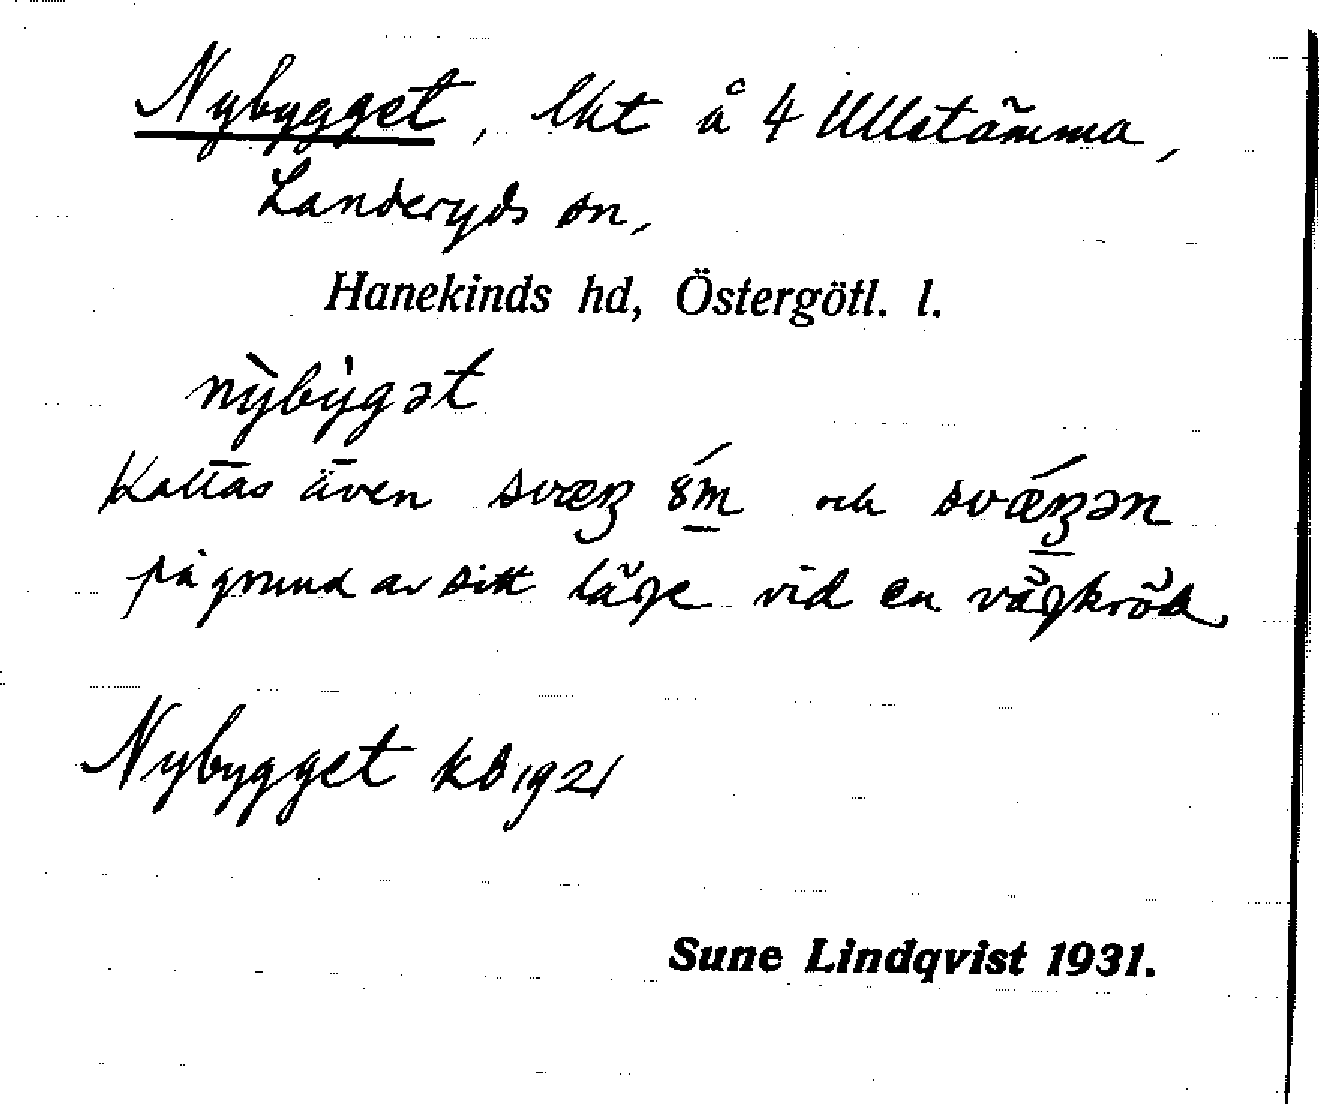 Nybygget, lht å 4 Ullstämma,
Landeryds sn,
Hanekinds hd, Östergötl. l.
nỳbỳgət
Kallas även och
på grund av sitt läge vid en vägkrök
Nybygget kb 1921
Sune Lindqvist 1931.